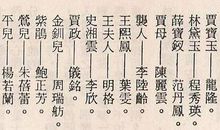 賈寶玉…龍隆。
林黛玉…程秀英。
薛寶釵…范丹鳳。
賈母…陳麗雲。
襲人…李陸齡。
王熙鳳…葉雯。
王夫人…明格。
史湘雲…李欣。
賈政…儀銘。
金釧兒…周瑞舫。
紫鵑…鮑正芳。
鶯兒…朱蓓蕾。
平兒…楊若蘭。